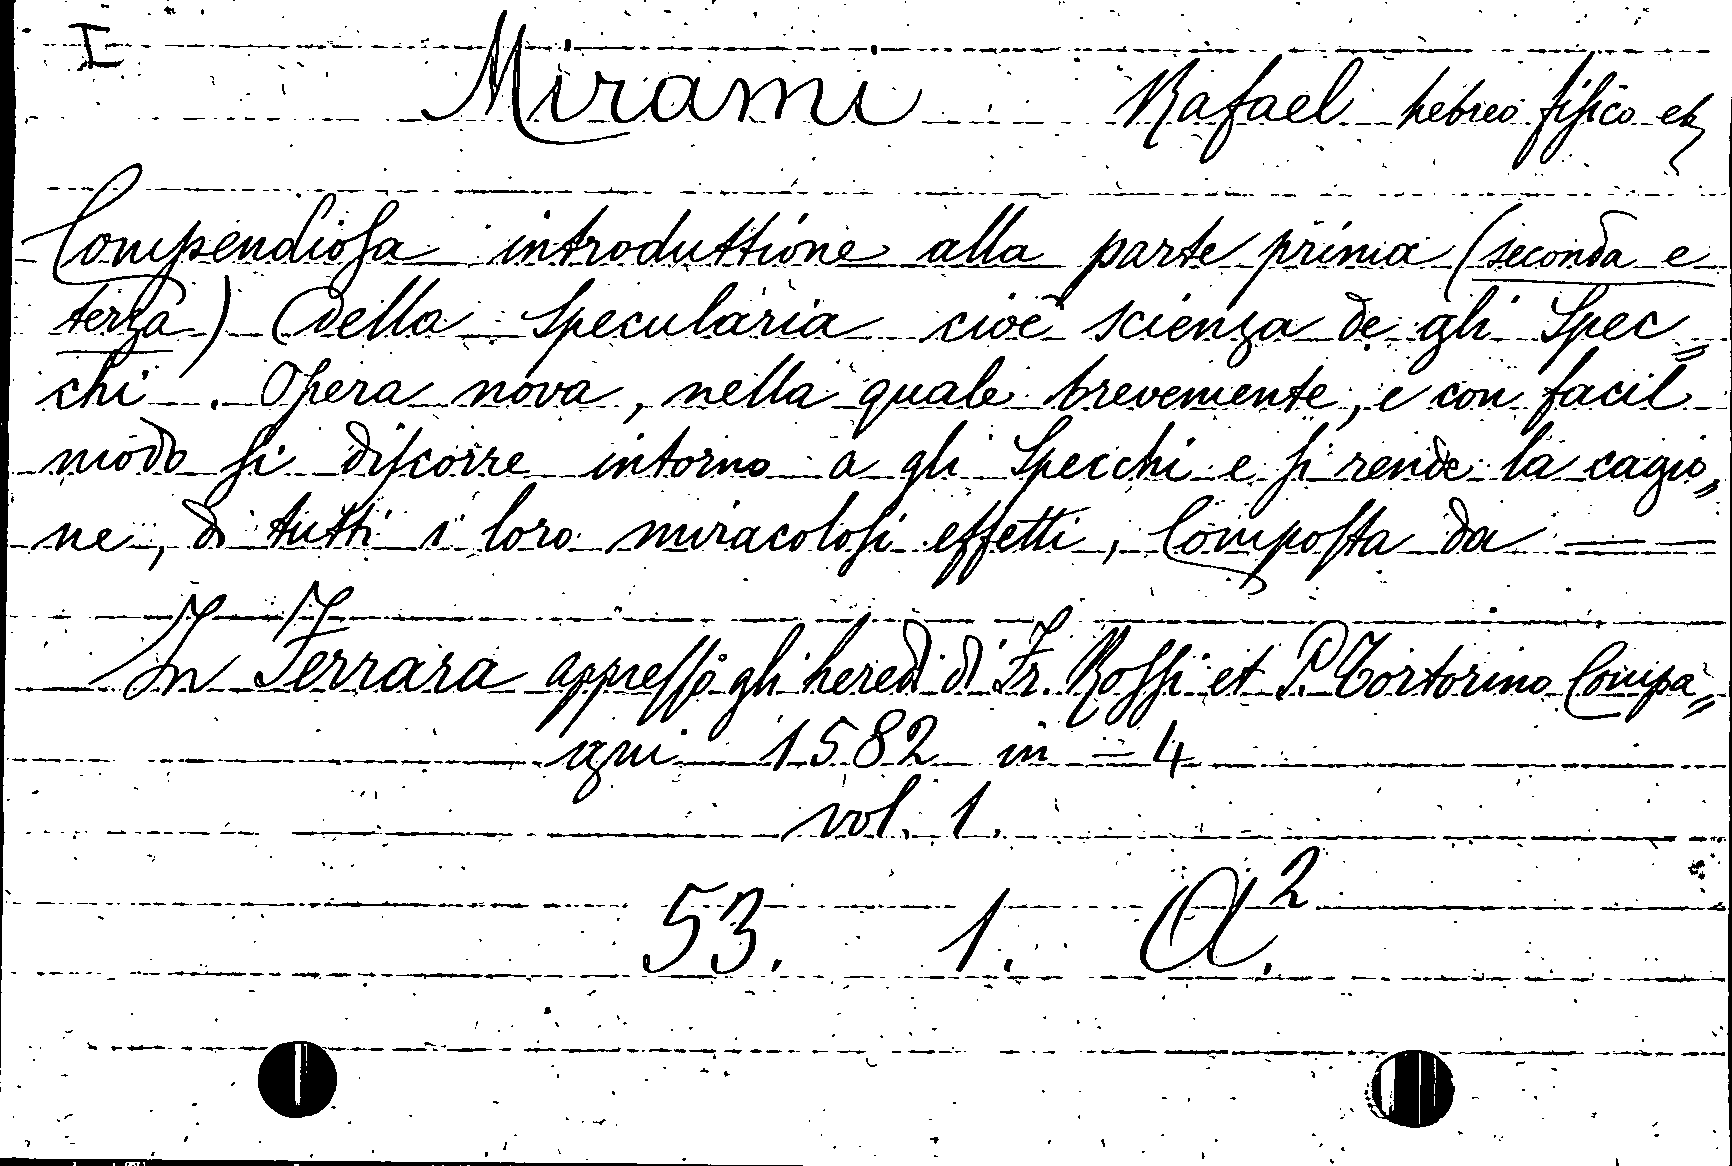 I
Mirami Rafael hebreo fiſico etz
Compendioſa introduttione alla parte prima (seconda e
terza) della Specularia cioè scienza de gli Spec„
chi. Opera nova, nella quale brevemente, e con facil
modo ſi diſcorre intorno a gli Specchi e ſi rende la cagio„
ne, di tutti i loro miracoloſi effetti, Compoſta da — —
In Ferrara appreſſo gli heredi di Fr. Roſſi et P. Tortorino Compa„
gni 1582 in = 4
vol. 1.
53. 1. A².